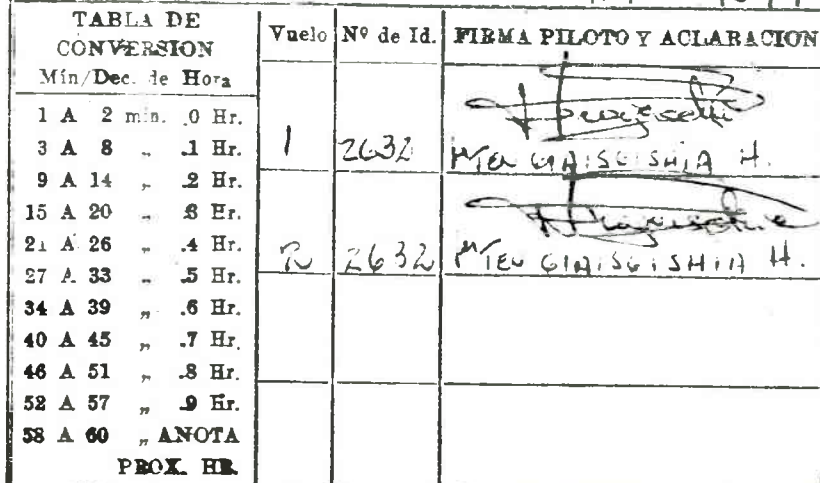 TABLA DE
CONVERSION
Mín/Dec. de Hora
1 A 2 min. .0 Hr.
3 A 8 „ .1 Hr.
9 A 14 „ .2 Hr.
15 A 20 „ .3 Hr.
21 A 26 „ .4 Hr.
27 A 33 „ .5 Hr.
34 A 39 „ .6 Hr.
40 A 45 „ .7 Hr.
46 A 51 „ .8 Hr.
52 A 57 „ .9 Hr.
58 A 60 „ ANOTA
PROX. HR.
Vuelo Nº de Id. FIRMA PILOTO Y ACLARACION
1 2632 H.
2632 H.